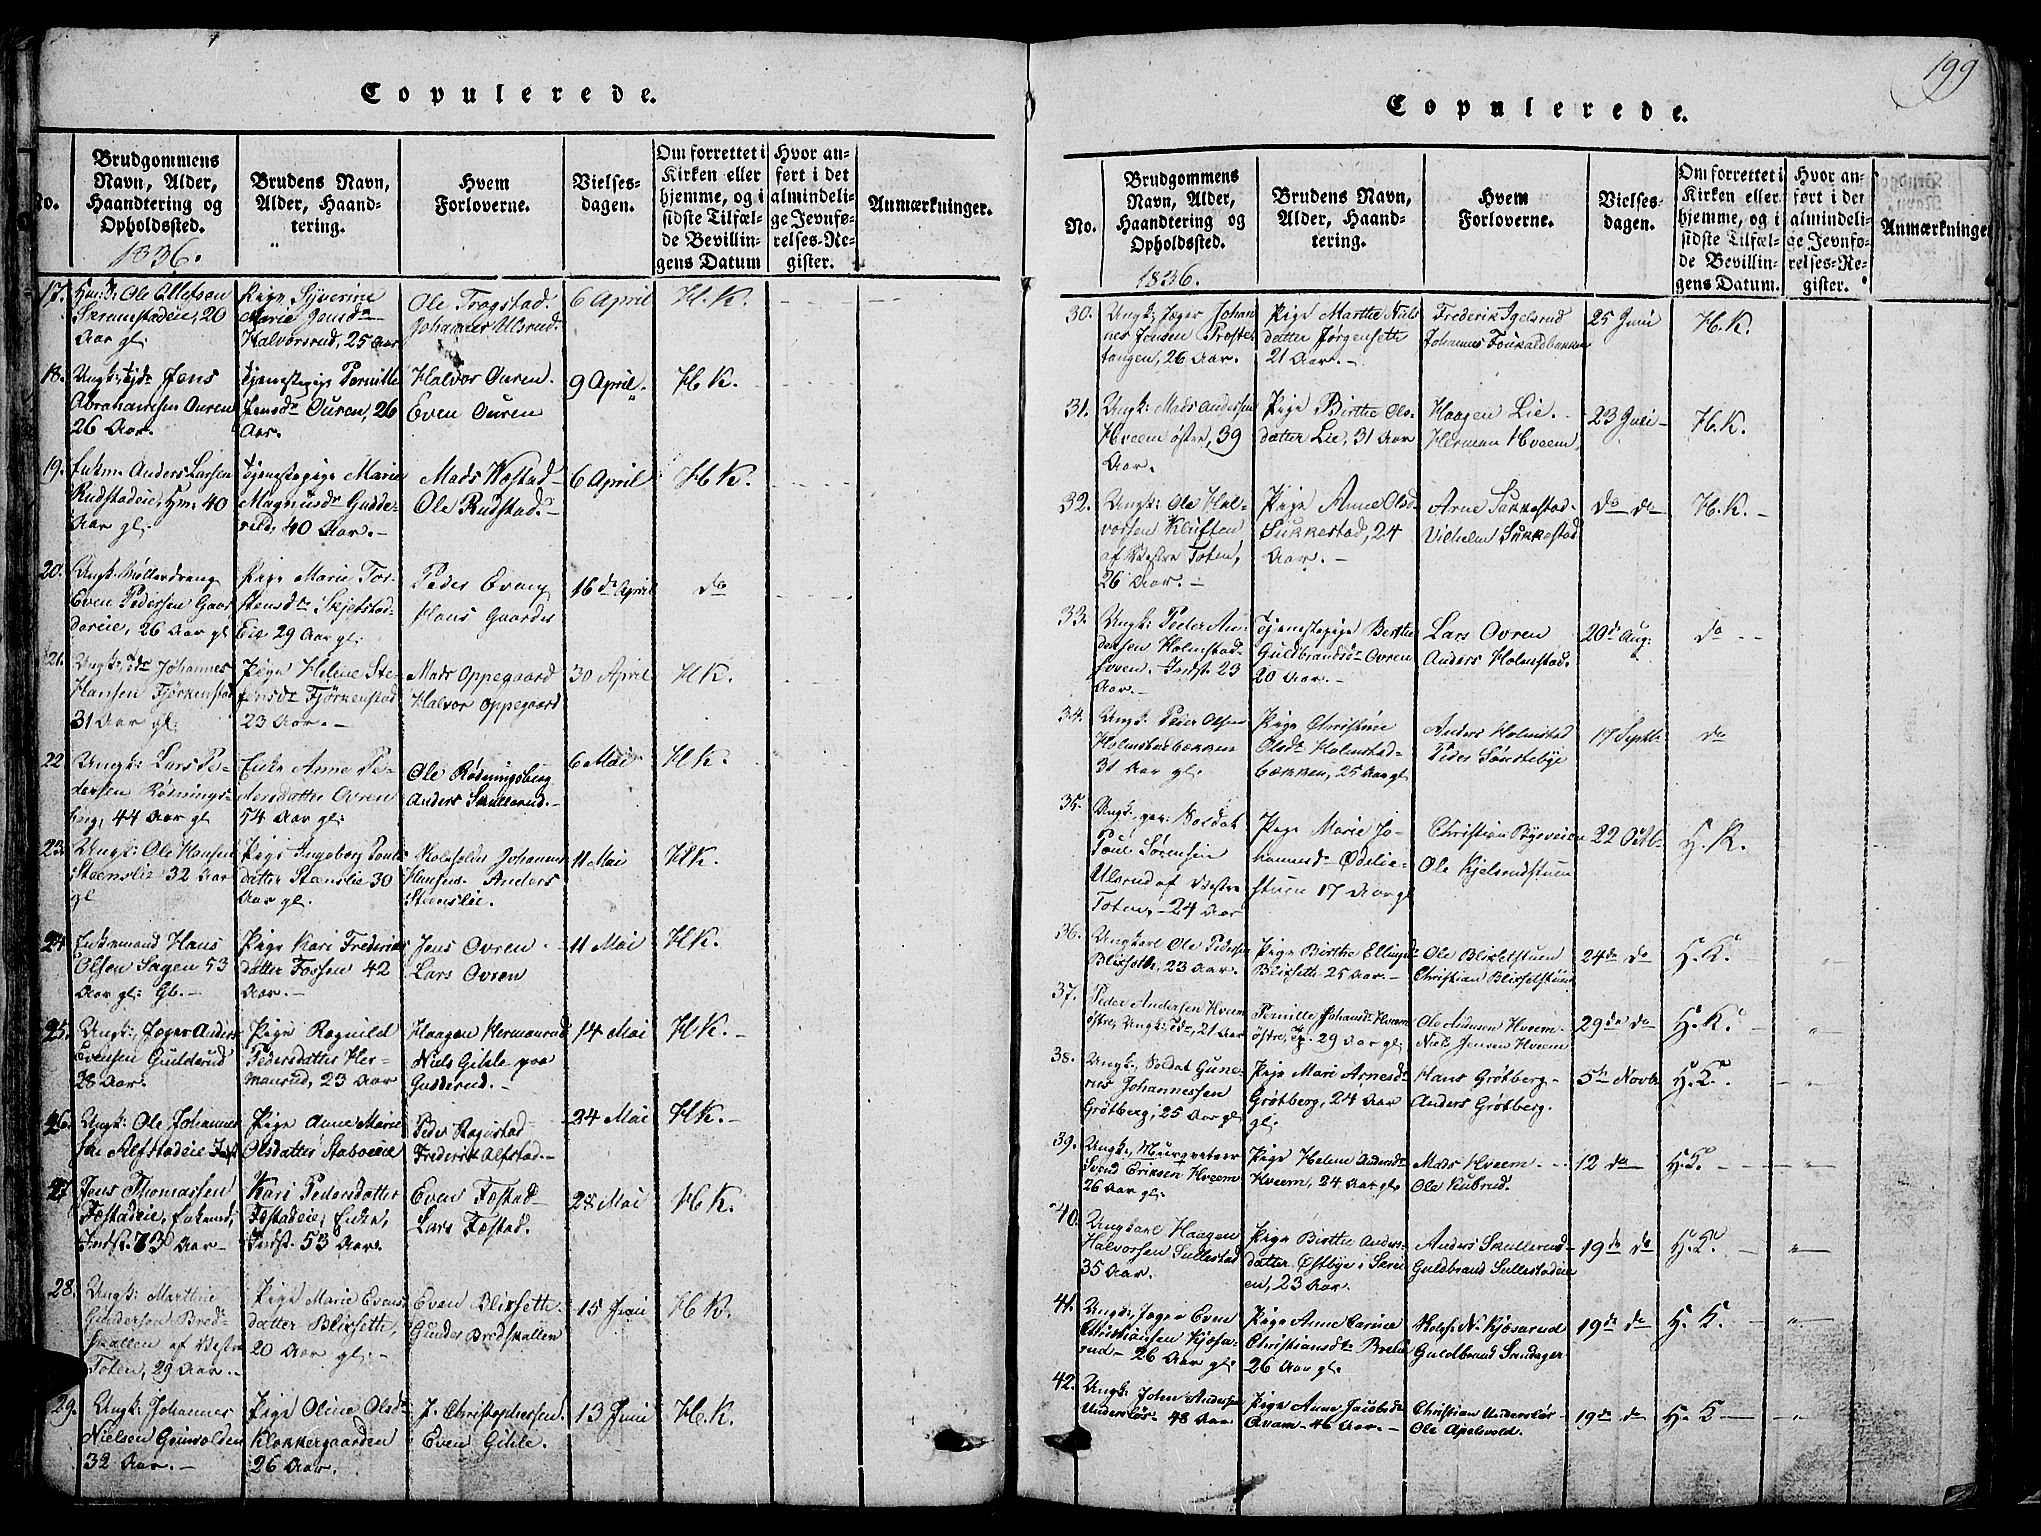 Copulerede.
No.
Brudgommens
Navn, Alder,
Haandtering og
Opholdssted.
1836.
Brudens Navn,
Alder, Haand-
tering.
Hvem
Forloverne.
Vielses-
dagen.
Om forrettet i
Kirken eller
hjemme, og i
sidste Tilfæl-
de Bevillin-
gens Datum
Hvor an-
ført i det
almindeli-
ge Jevnfø-
relses-Re-
gister.
Anmærkninger.
17. Ole Ollesen
Skrumstadeie, 20
Aar gl:
Pige Syverine
Marie Jensdr
Halvorsrud, 25 Aar
Ole Trogstad
Johannes Ulsrud
6 April
H. K.
18. Ungk: Jens
Abrahamsen Ouren
26 Aar.
Tjenestepige Pernille
Jensdr Ouren, 26
Aar.
Halvor Ouren.
Even Ouren
9 April
H K.
19. Enkm. Anders Larsen
Rudstadeie, Hm: 40
Aar gl:
Tjenestepige Marie
Magnusdr Gudde-
rud, 40 Aar. -
Mads Wostad
Ole Rudstad. -
6 April
H K.
20. Ungk: Møllerdreng
Even Pedersen Gaar
dereie, 26 Aar gl
Pige Marie Tor-
stensdr Skjelstad-
Eie 29 Aar gl:
Peder Evang
Hans Gaarder
16 de April
do
21. Ungk: Johannes
Hansen Fjørkenstad
31 Aar gl:
Pige Helene Ste-
fensdr Fjørkenstad
23 Aar. -
Mads Oppegaard
Halvor Oppegaard
30 April
H K.
22 Ungk: Lars Pe-
dersen Rødnings-
berg, 44 Aar gl
Enke Anne Pe-
dersdatter Ovren
54 Aar gl:
Ole Rødningsberg
Anders Skullerud. -
6 Mai
H K.
23. Ungk: Ole Hansen
Stenslie 32 Aar
gl
Pige Ingeborg Pouls
datter Stenslie 30
Aar gl.
Skoleholder Johannes
Hansen. Anders
Stenslie.
11 Mai
H K.
24 Enkemand Hans
Olsen Sogen 53
Aar gl: Gb. -
Pige Kari Frederiks
datter Fossen 42
Aar. -
Jens Ovren
Lars Ovren
11 Mai
H K.
25. Ungk: Jæger Anders
Evensen Gulderud
28 Aar.
Pige Ragnild
Pedersdatter Her-
manrud, 23 Aar
Haagen Hermanrud
Niels Gihle paa
Gudderud. -
14 Mai
H. K. -
26. Ungk: Ole Johannes
sen Alfstadeie
Pige Anne Marie
Olsdatter Staboeeie
Peder Rognstad
Frederik Alfstad. -
24 Mai
H K. -
27 Jens Thomassen
Fostadeie, Enkemd,
Indst. 73 Aar -
Kari Pedersdatter
Fostadeie, Enke,
Indst. 53 Aar.
Even Fostad -
Lars Fostad.
28 Mai
H K.
28. Ungk: Marthine
Gundersen Bred-
skallen af Vestre
Toten, 29 Aar. -
Pige Marie Evens
datter Blixseth,
20 Aar gl: -
Even Blixseth.
Gunder Bredskallen
15 Juni
H K.
29. Ungk: Johannes
Nielsen Grinvolden
32 Aar. -
Pige Oline Olsdr
Klokkergaarden
26 Aar.
J. Christophersen.
Even Gihle.
13 Juni
H. K.
199
Copulerede.
No.
Brudgommens
Navn, Alder,
Haandtering og
Opholdssted.
1836.
Brudens Navn,
Alder, Haand-
tering.
Hvem
Forloverne.
Vielses-
dagen.
Om forrettet i
Kirken eller
hjemme, og i
sidste Tilfæl-
de Bevillin-
gens Datum.
Hvor an-
ført i det
almindeli-
ge Jevnfø-
relses-Re-
gister.
Anmærkninger
30. Ungk: Jæger Johan
nes Jensen Proste-
tangen, 26 Aar.
Pige Marthe Niels
datter Jørgenseth
21 Aar. -
Frederik Igelsrud
Johannes
25 Juni
H. K.
31. Ungk: Mads Andersen
Hveem østre, 39
Aar.
Pige Birthe Ols-
datter Lie, 31 Aar
Haagen Lie. -
Herman Hveem
23 Juli -
H. K.
32. Ungk: Ole Hal-
vorsen Kluften
af Vestre Toten,
26 Aar. -
Pige Anne Olsdr
Sukkestad, 24
Aar. -
Arne Sukkestad -
Vilhelm Sukkestad
do do
H. K. -
33. Ungk: Peder An-
dersen Holmstad-
Indst. 23
Aar. -
Tjenestepige Berthe
Guldbrandsdr Ovren
20 Aar. -
Lars Ovren
Anders Holmstad.
20 d Aug:
do - -
34. Ungk: Peder Olsen
Holmstadbækken
31 Aar gl:
Pige Christine
Olsdr Holmstad-
bækken, 25 Aar gl
Anders Holmstad
Peder Sønsteby
17 Septbr
do
35. Ungk: Soldat
Poul Sørensen
Ulsrud af Vestre
Toten, - 24 Aar
Pige Marie Jo-
hannesdr Ødelie-
stuen 17 Aar gl
Christian Byeveien
Ole Kjelsrudstuen
22 Octb.
H. K.
36. Ungkarl Ole Pedersen
Blixseth, 23 Aar.
Pige Birthe Ellingsdr
Blixseth 25 Aar. -
Ole Blixsetstuen
Christian Blixsetstuen
24 de do
H. K. -
37. Peder Andersen Hveem
østre, Ungk: 21 Aar
Pernille Johansdr Hveem
østre, Pg. 29 Aar gl:
Ole Andersen Hveem -
Niels Jensen Hveem
29 de do
H. K. -
38. Ungk: Soldat Gune-
rius Johannessen
Grøtberg, 25 Aar gl
Pige Mari Arnesdr
Grøtberg, 24 Aar
gl:
Hans Grøtberg -
Anders Grøtberg.
5te Novbr
H. K. -
39. Ungk: Murmester
Svend Eriksen Hveem
26 Aar gl:
Pige Helene Andersdr
Hveem, 24 Aar gl
Mads Hveem - - -
Ole Kubrud.
12 do
H. K. -
40. Ungkarl Haagen
Halvorsen Sullestad
35 Aar.
Pige Birthe Anders-
datter Østbye i Skrei
en, 23 Aar.
Anders Skullerud -
Guldbrand Sullestadeie
19 de do
H. K. -
41. Ungk: Jæger Even
Christiansen Kjøse-
rud - 26 Aar gl
Pige Anne Carine
Christiansdr
26 Aar gl.
Skoleh. N. Kjøserud
Guldbrand Sandager
19 de do
H. K. -
42. Ungk: Joten Andersen
Underslør 48 Aar.
Pige Anne Jacobsdr
Qvam - 46 Aar. -
Christian Underslør -
Ole Apelsvold.
19 de do
H. K -